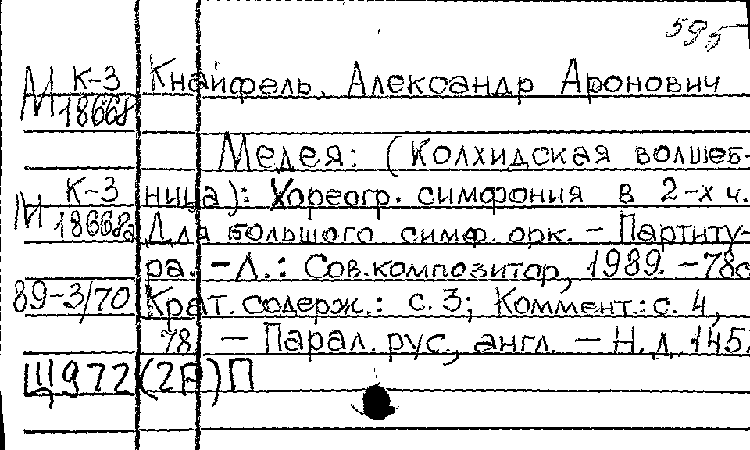 595
М К-3 Кнайфель, Александр Аронович
18668
Медея: (Колхидская волшеб-
М К-3 ница): Хореогр. симфония в 2-х ч.
18668а Для большого симф. орк. – Партиту-
ра. – Л.: Сов. композитор, 1989. – 78с
89-3/70 Крат. содерж.: с. 3; Коммент.: с. 4,
78. – Парал. рус., англ. – Н.д. 145.
Щ972(2Р)П